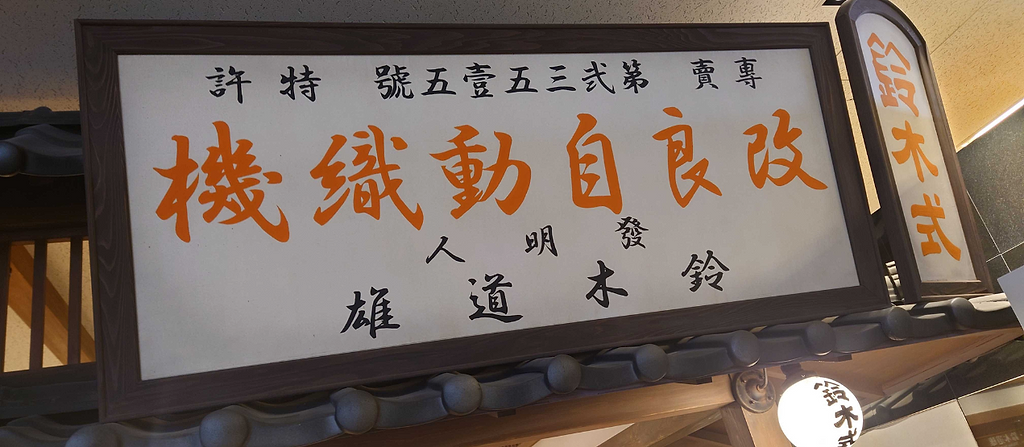 專賣 第弐三五壹五號 特許
改良自動織機
發明人
鈴木道雄
鈴木式
鈴木式